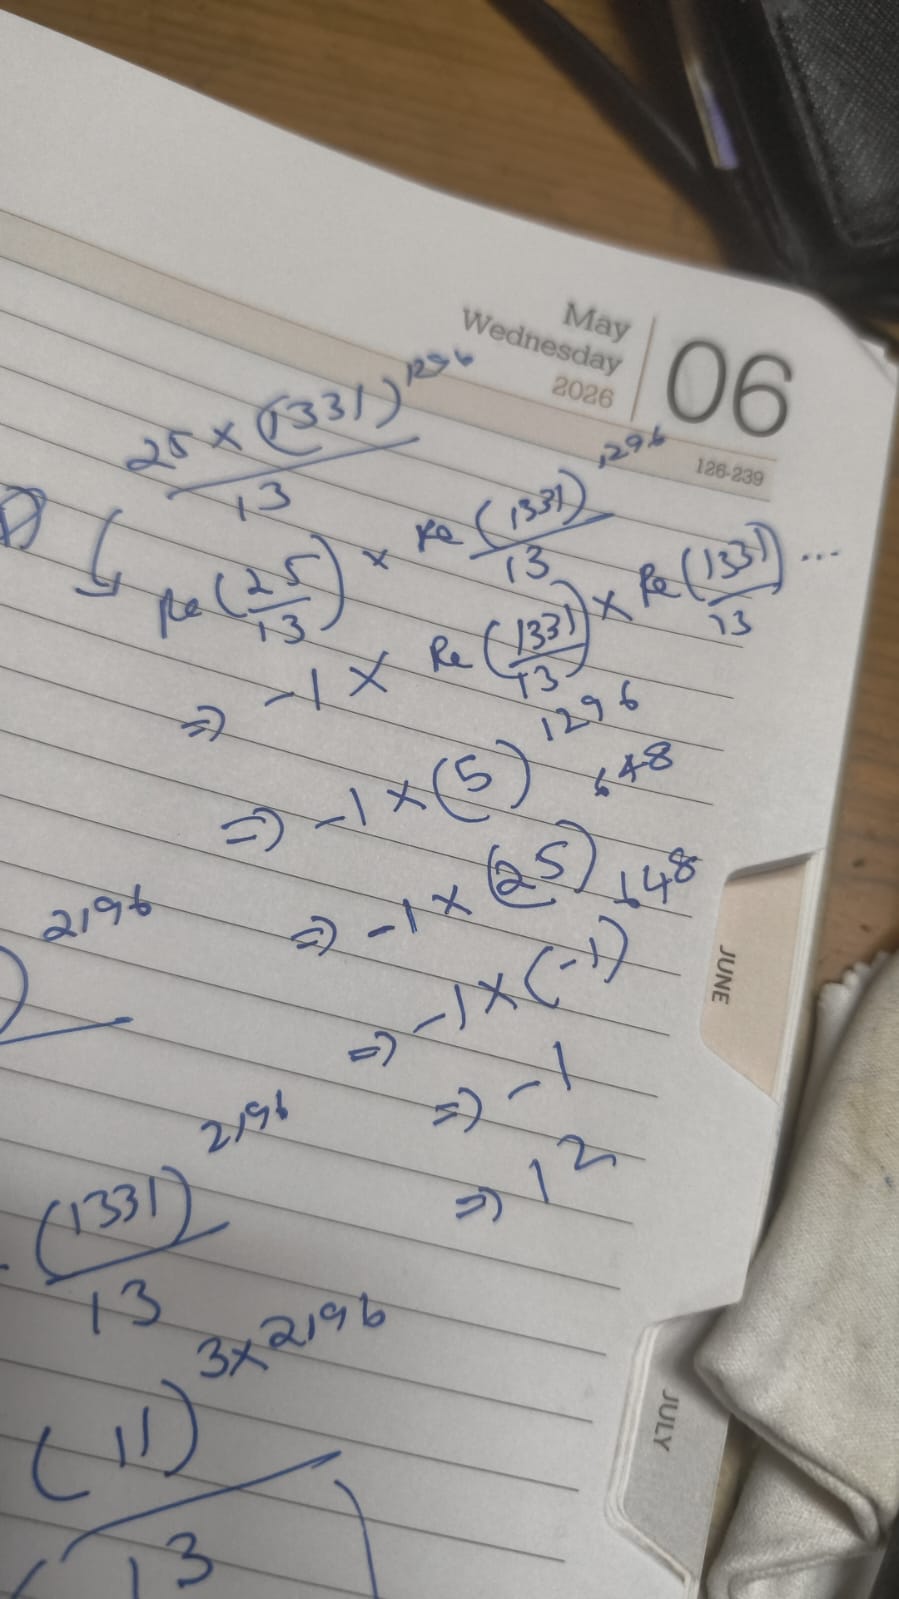 May
Wednesday
2026
06
126-239
25 × (1331)^1296
13
Re (25/13) × Re (1331)^1296/13 × Re (1331/13) ...
⇒ -1 × Re (1331/13)^1296
⇒ -1 × (5)^1296
⇒ -1 × (25)^648
⇒ -1 × (-1)^648
⇒ -1
⇒ 12
2196
(1331)^2196
13
(11)^3×2196
13
JUNE
JULY